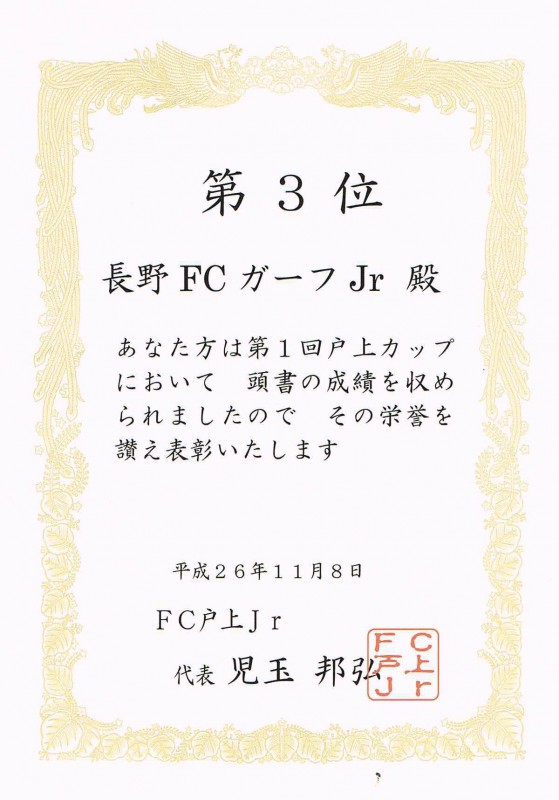 第 3 位
長野 FC ガーフ Jr 殿
あなた方は第１回戸上カップ
において 頭書の成績を収め
られましたので その栄誉を
讃え表彰いたします
平成２６年１１月８日
ＦＣ戸上Ｊｒ
代表 児玉 邦弘
FC
戸上
Jr